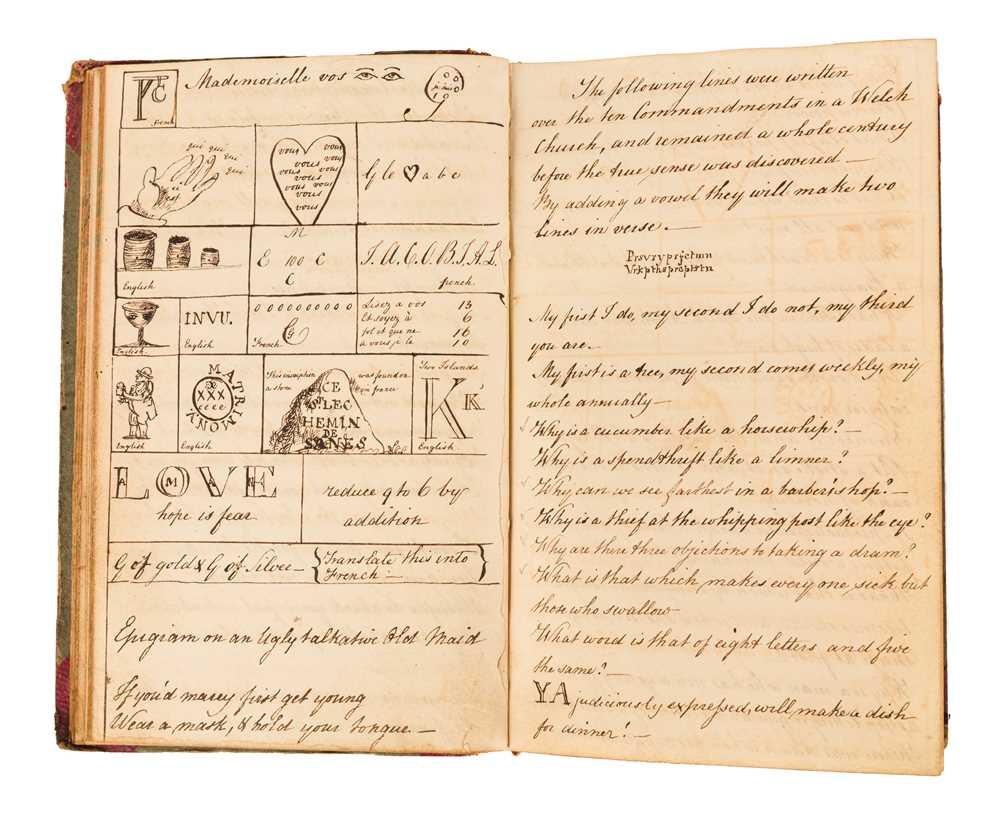 Mademoiselle vos
french
oui oui oui
oui
vous vous
vous
vous vous
vous vous
vous vous vous
vous vous
vous
G le a b c
English
M
E 100 C
C
J. A. C. O. B. I. A. L.
french
English
INVU.
English
OOOOOOOOOO
G
French
Lisez a vos 13
Et soyez à 6
sot et que ne 16
a vous je le 10
English
MATRIMONY
XXX
cccc
English
This inscription was found on
a stone in france
CE
EST LEC
HEMIN
DE
SANES
Two Islands
K K
English
LOVE
A M A N
hope is fear
reduce 9 to 6 by
addition
G of gold & G of Silver — {Translate this into
French —}
Epigram on an Ugly talkative Old Maid
If you'd marry first get young
Wear a mask, & hold your tongue. —
The following lines were written
over the ten Commandments in a Welch
Church, and remained a whole century
before the true sense was discovered —
By adding a vowel they will make two
lines in verse. —
Prsvryprfctmn
Vrkpthsprcptstn
My first I do, my second I do not, my third
you are. —
My first is a tree, my second comes weekly, my
whole annually —
Why is a cucumber like a horsewhip? —
Why is a spendthrift like a limner?
Why can we see farthest in a barber's shop? —
Why is a thief at the whipping post like the eye?
Why are there three objections to taking a dram?
What is that which makes every one sick but
those who swallow —
What word is that of eight letters and five
the same?
YA judiciously expressed, will make a dish
for dinner! —